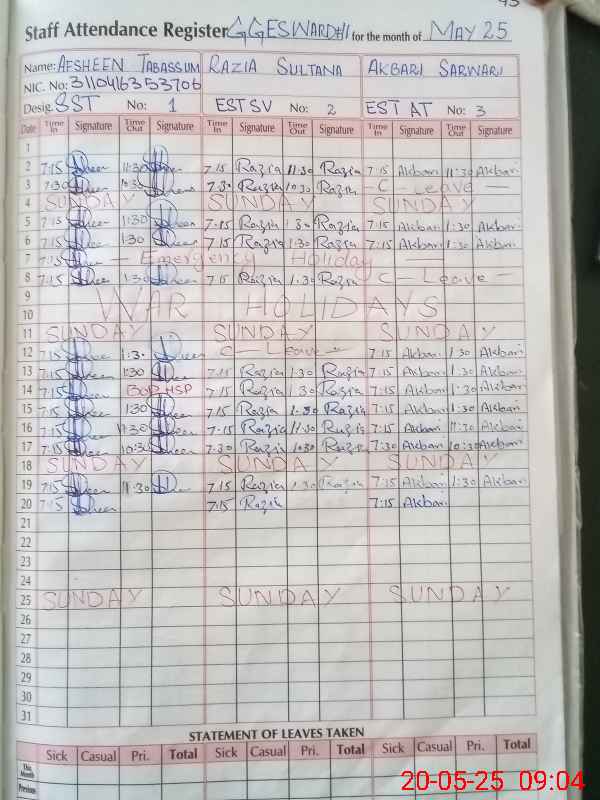 Staff Attendance Register GGES WARDHI for the month of MAY 25
Name: AFSHEEN TABASSUM RAZIA SULTANA AKBARI SARWARI
NIC. No: 3110416353706
Desig. SST No: 1 EST SV No: 2 EST AT No: 3
Date Time In Signature Time Out Signature Time In Signature Time Out Signature Time In Signature Time Out Signature
1
2 7:15 11:30 7:15 Razia 11:30 Razia 7:15 Akbari 11:30 Akbari
3 7:30 10:30 7:30 Razia 10:30 Razia - C - Leave -
4 SUNDAY SUNDAY SUNDAY
5 7:15 11:30 7:15 Razia 1:30 Razia 7:15 Akbari 1:30 Akbari
6 7:15 1:30 7:15 Razia 1:30 Razia 7:15 Akbari 1:30 Akbari
7 7:15 - Emergency Holiday
8 7:15 1:30 7:15 Razia 1:30 Razia C - Leave -
9
10 WAR HOLIDAYS
11 SUNDAY SUNDAY SUNDAY
12 7:15 1:30 C - Leave - 7:15 Akbari 1:30 Akbari
13 7:15 1:30 7:15 Razia 1:30 Razia 7:15 Akbari 1:30 Akbari
14 7:15 7:15 Razia 1:30 Razia 7:15 Akbari 1:30 Akbari
15 7:15 1:30 7:15 Razia 1:30 Razia 7:15 Akbari 1:30 Akbari
16 7:15 11:30 7:15 Razia 11:30 Razia 7:15 Akbari 11:30 Akbari
17 7:15 10:30 7:30 Razia 10:30 Razia 7:30 Akbari 10:30 Akbari
18 SUNDAY SUNDAY SUNDAY
19 7:15 11:30 7:15 Razia 1:30 Razia 7:15 Akbari 1:30 Akbari
20 7:15 7:15 Razia 7:15 Akbari
21
22
23
24
25 SUNDAY SUNDAY SUNDAY
26
27
28
29
30
31
STATEMENT OF LEAVES TAKEN
Sick Casual Pri. Total Sick Casual Pri. Total Sick Casual Pri. Total
This Month
Previous
20-05-25 09:04